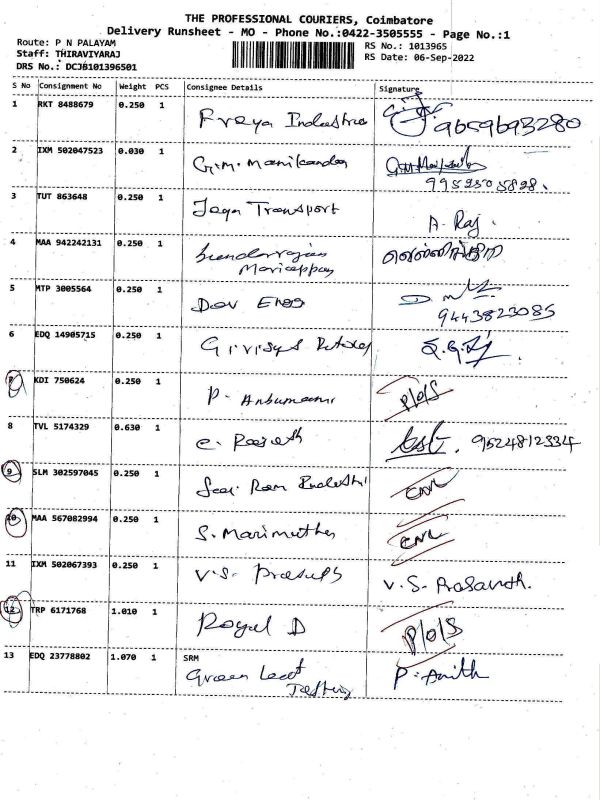 THE PROFESSIONAL COURIERS, Coimbatore
Delivery Runsheet - MO - Phone No.:0422-3505555 - Page No.:1
Route: P N PALAYAM
Staff: THIRAVIYARAJ
DRS No.: DCJB101396501
RS No.: 1013965
RS Date: 06-Sep-2022
S No Consignment No Weight PCS Consignee Details Signature
1 RKT 8488679 0.250 1 9659693280
2 IXM 502047523 0.030 1 G.M. Manikandan
9952505828.
3 TUT 863648 0.250 1 Jaya Transport A. Raj.
4 MAA 942242131 0.250 1
5 MTP 3005564 0.250 1 Dev Engg
9443823085
6 EDQ 14905715 0.250 1
7 KDI 750624 0.250 1 P. Anbumani P/O/S
8 TVL 5174329 0.630 1 9524812334
9 SLM 302597045 0.250 1 CNL
10 MAA 567082994 0.250 1 S. Marimuthu CNL
11 IXM 502067393 0.250 1 V.S. V.S. Prasanth.
12 TRP 6171768 1.010 1 Royal D P/O/S
13 EDQ 23778802 1.070 1 SRM
Green Leaf P. Anith
Testing